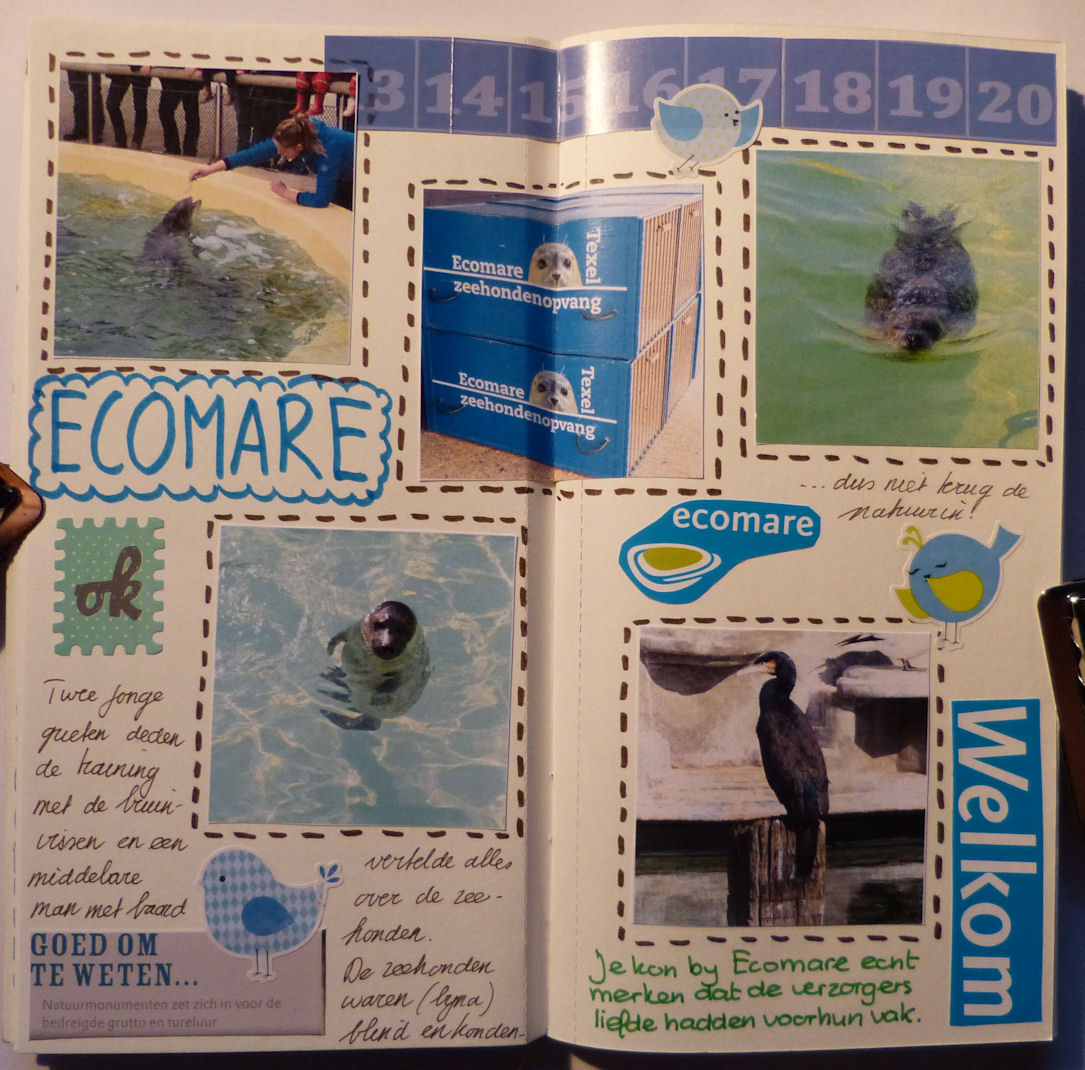 3 14 15 16 17 18 19 20
Ecomare
Texel
zeehondenopvang
Ecomare
Texel
zeehondenopvang
ECOMARE
ok
Twee jonge
grieten deden
de training
met de bruin-
vissen en een
middelbare
man met baard
GOED OM
TE WETEN...
Natuurmonumenten zet zich in voor de
bedreigde grutto en tureluur
vertelde alles
over de zee-
honden.
De zeehonden
waren (bijna)
blind en konden-
... dus niet terug de
natuur in!
ecomare
Welkom
Je kon by Ecomare echt
merken dat de verzorgers
liefde hadden voor hun vak.